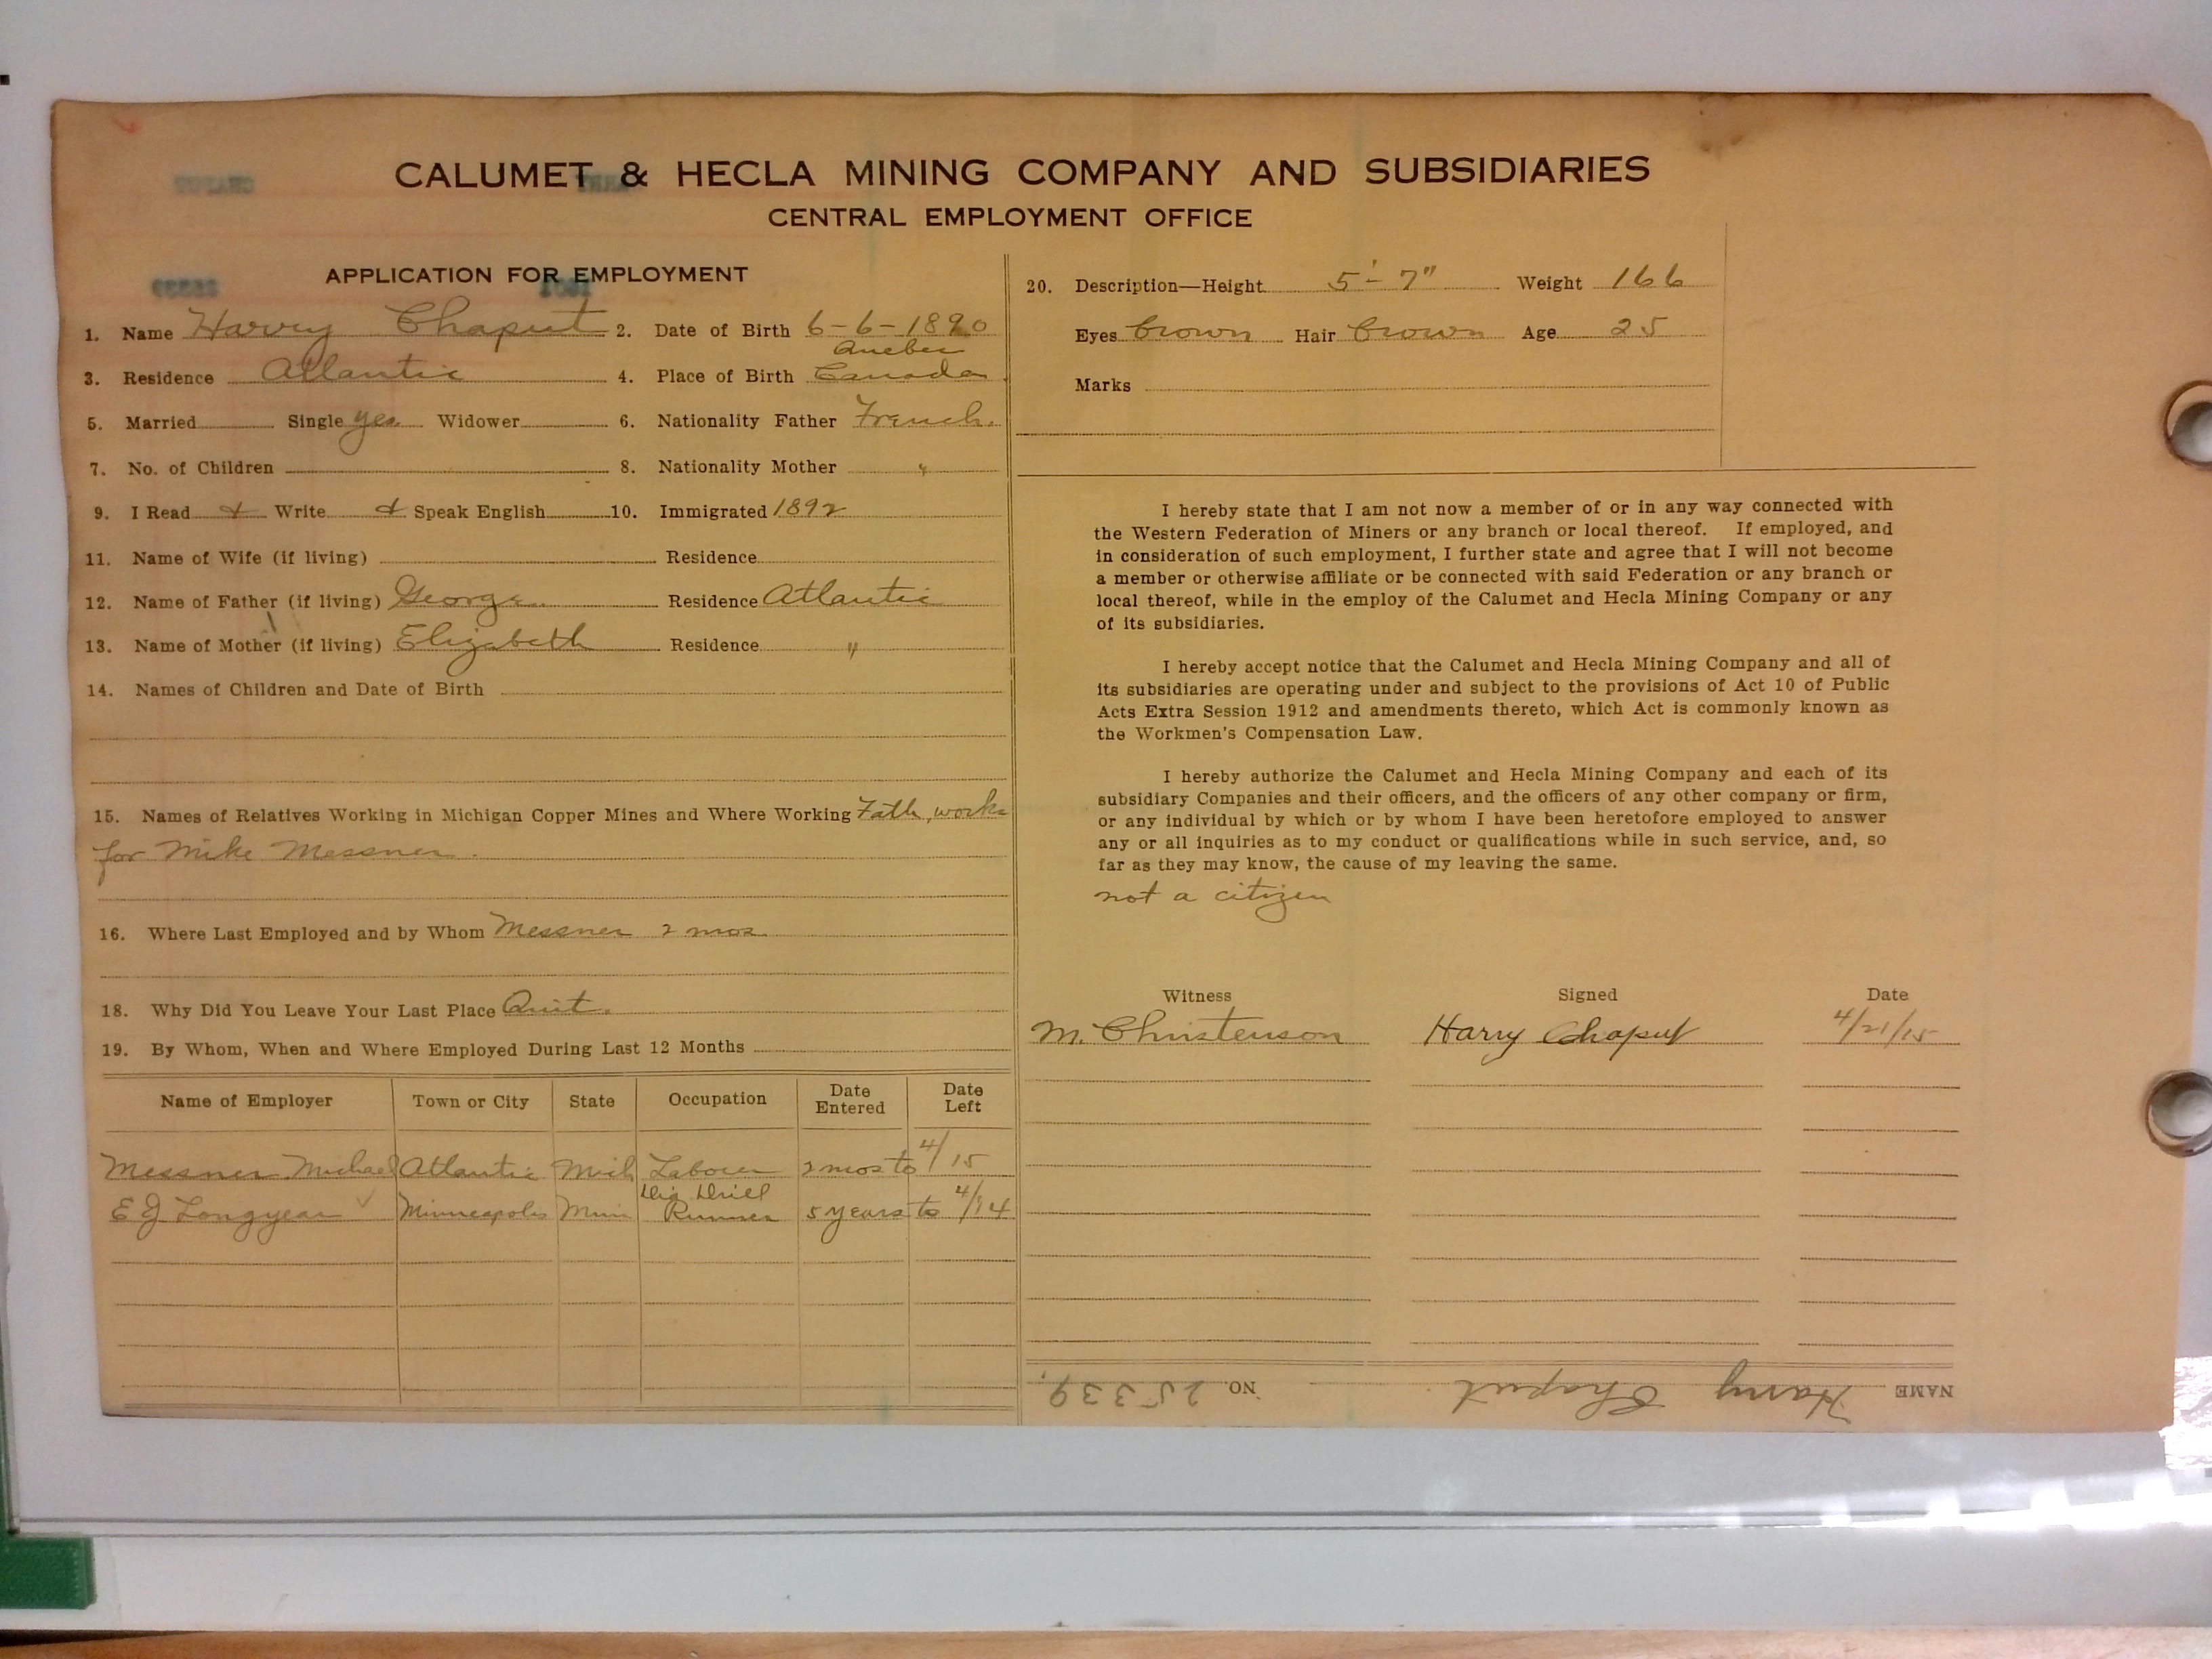 CALUMET & HECLA MINING COMPANY AND SUBSIDIARIES
CENTRAL EMPLOYMENT OFFICE
APPLICATION FOR EMPLOYMENT
1. Name Harry Chaput 2. Date of Birth 6-6-1890
Quebec
3. Residence Atlantic 4. Place of Birth Canada
5. Married Single yes Widower 6. Nationality Father French.
7. No. of Children 8. Nationality Mother "
9. I Read & Write & Speak English 10. Immigrated 1892
11. Name of Wife (if living) Residence
12. Name of Father (if living) George Residence Atlantic
13. Name of Mother (if living) Elizabeth Residence "
14. Names of Children and Date of Birth
15. Names of Relatives Working in Michigan Copper Mines and Where Working Fath, works
for Mike Messner.
16. Where Last Employed and by Whom Messner 2 mos.
18. Why Did You Leave Your Last Place Quit.
19. By Whom, When and Where Employed During Last 12 Months
Name of Employer Town or City State Occupation Date Entered Date Left
Messner Michael Atlantic Mich Laborer 2 mos to 4/15
E J Longyear Minneapolis Minn Dia Drill Runner 5 years to 4/14
20. Description—Height 5'-7" Weight 166
Eyes brown Hair brown Age 25
Marks
I hereby state that I am not now a member of or in any way connected with
the Western Federation of Miners or any branch or local thereof. If employed, and
in consideration of such employment, I further state and agree that I will not become
a member or otherwise affiliate or be connected with said Federation or any branch or
local thereof, while in the employ of the Calumet and Hecla Mining Company or any
of its subsidiaries.
I hereby accept notice that the Calumet and Hecla Mining Company and all of
its subsidiaries are operating under and subject to the provisions of Act 10 of Public
Acts Extra Session 1912 and amendments thereto, which Act is commonly known as
the Workmen's Compensation Law.
I hereby authorize the Calumet and Hecla Mining Company and each of its
subsidiary Companies and their officers, and the officers of any other company or firm,
or any individual by which or by whom I have been heretofore employed to answer
any or all inquiries as to my conduct or qualifications while in such service, and, so
far as they may know, the cause of my leaving the same.
not a citizen
Witness Signed Date
M. Christenson Harry Chaput 4/21/15
NAME Harry Chaput. NO. 25339,